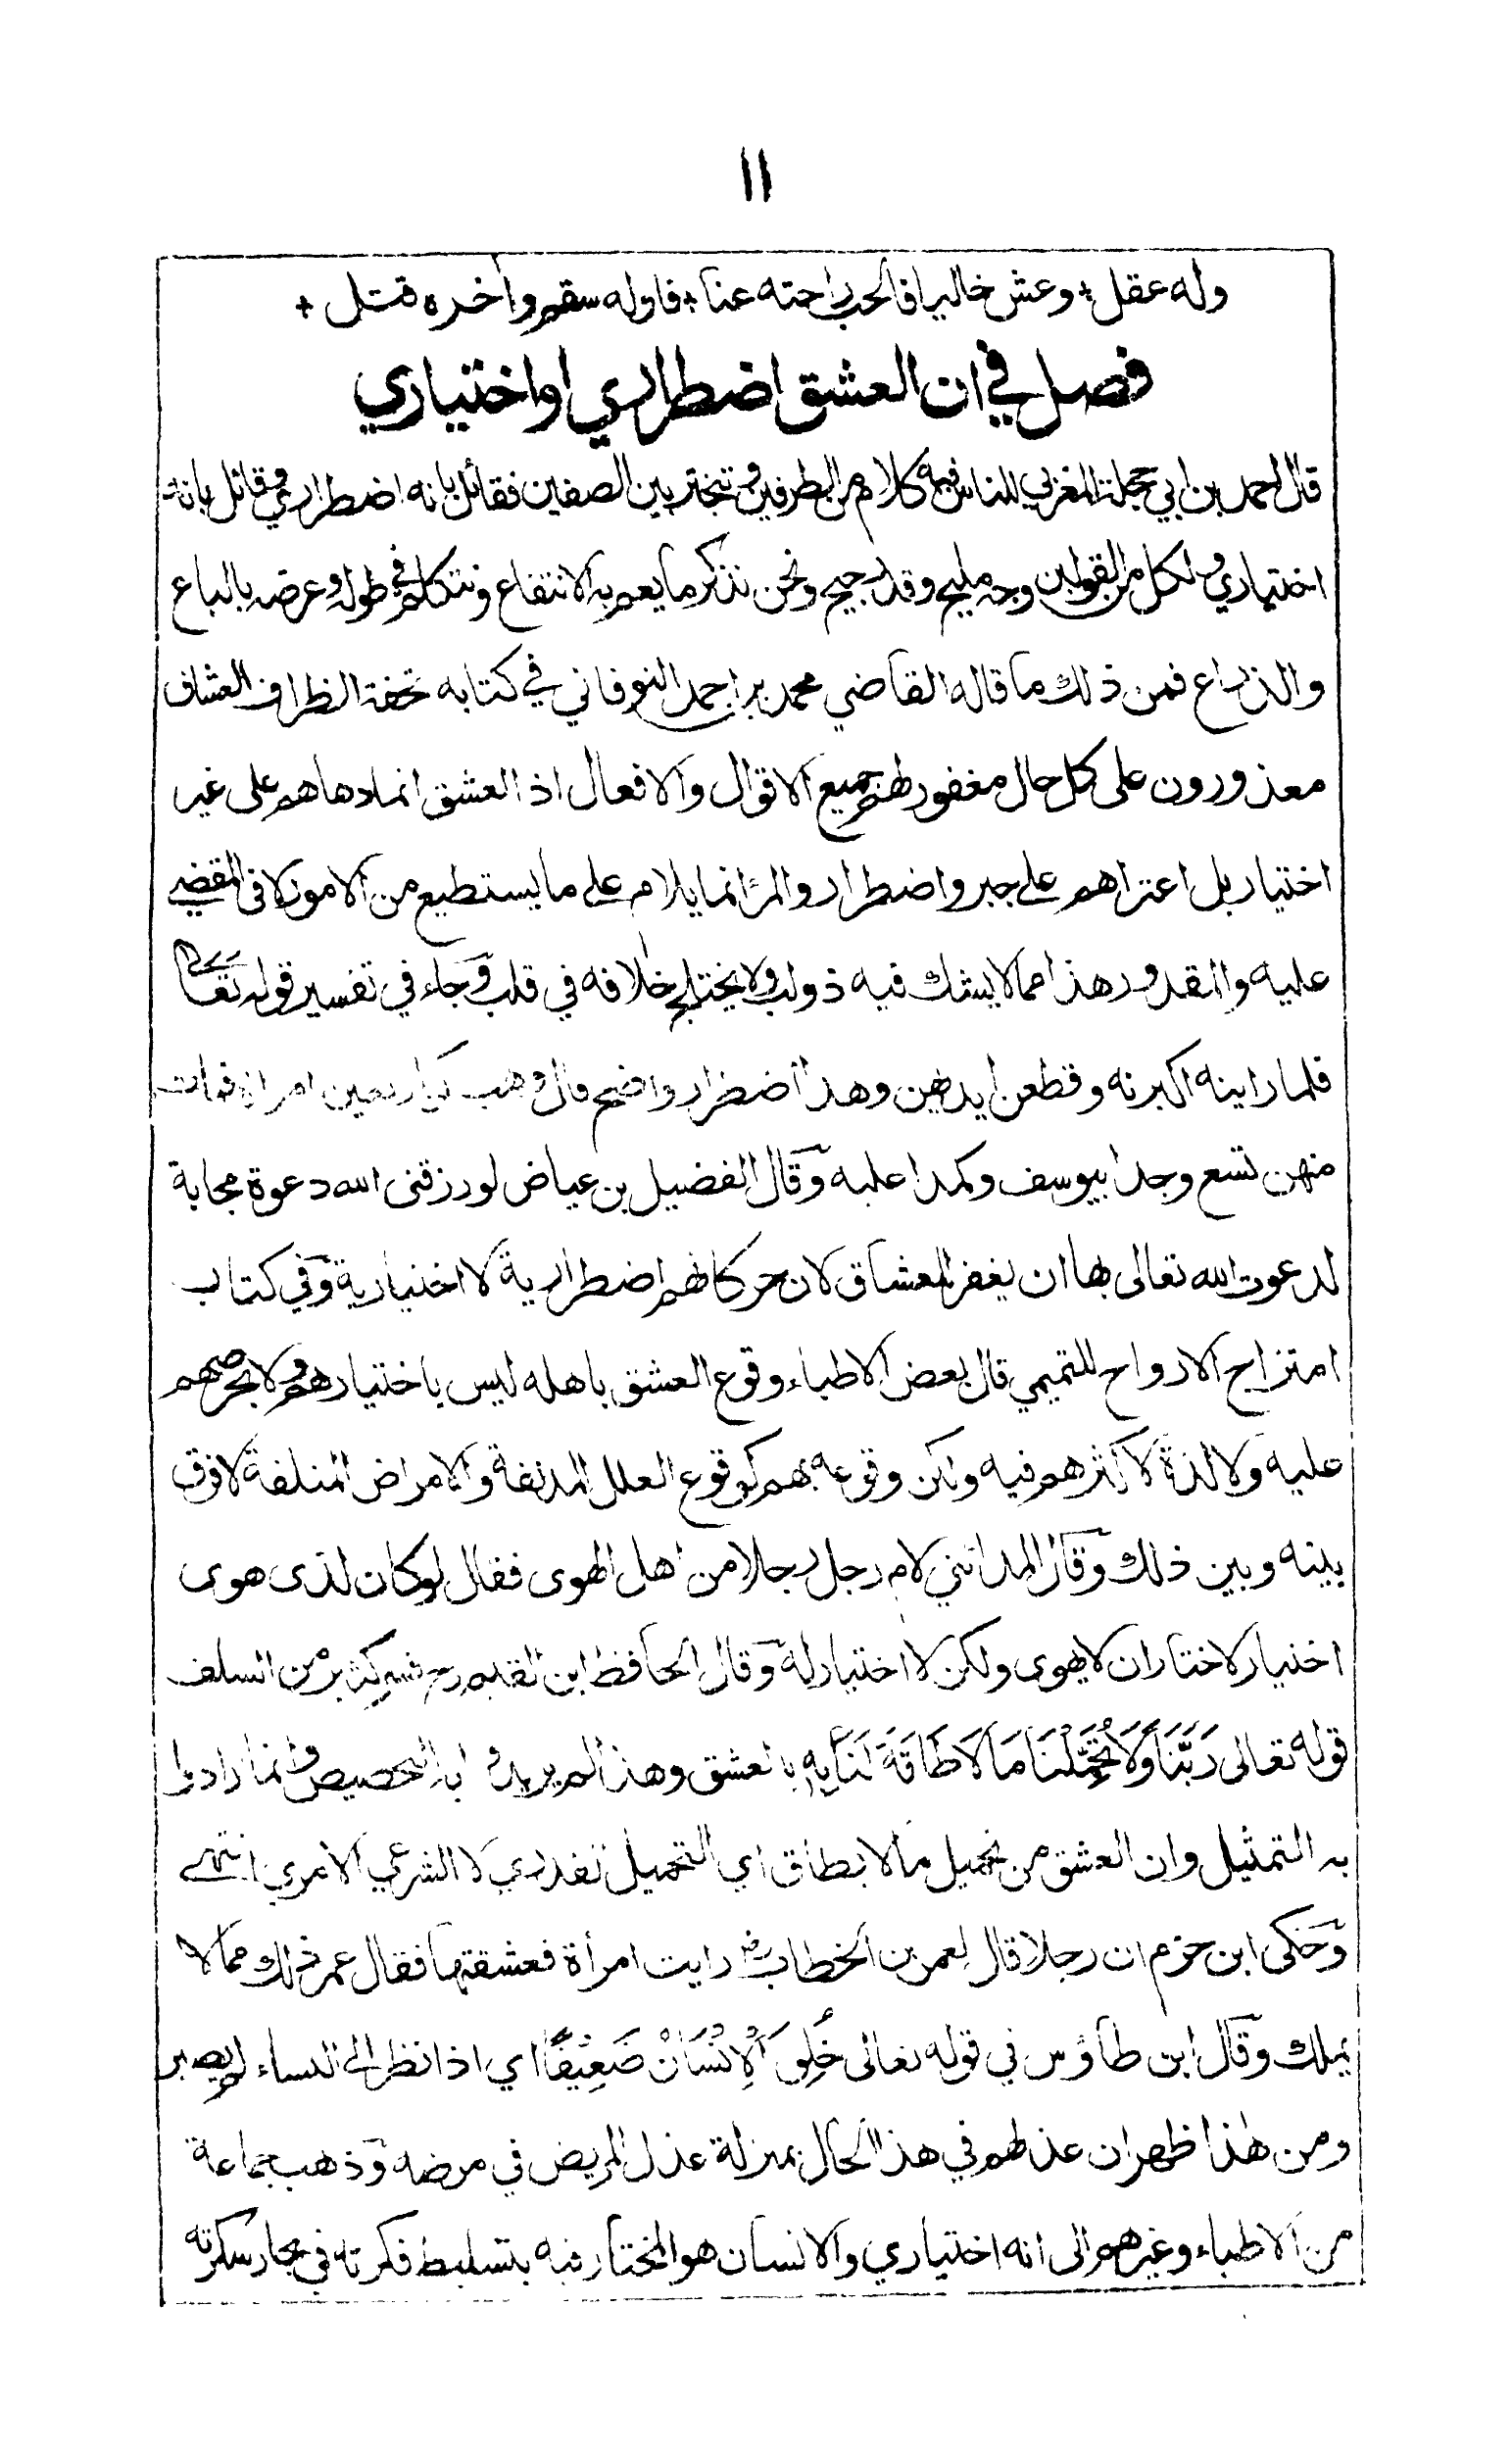 ١١
وله عقل + وعش خاليا فالحب راحته عنا + فاوله سقم واخره قتل +
فصل في ان العشق اضطراري او اختياري
قال احمد بن ابي حجلة المغربي للناس فيه كلام من الطرفين وتبختر بين الصفين فقائل بانه اضطراري وقائل بانه
اختياري ولكل من القولين وجه مليح وقد رجيح ونحن نذكر ما يعم به الانتفاع ونتكلم في طوله وعرضه بالباع
والذراع فمن ذلك ما قاله القاضي محمد بن احمد النوقاني في كتابه تحفة الظراف العشاق
معذورون على كل حال مغفور لهم جميع الاقوال والافعال اذ العشق انما دهاهم على غير
اختيار بل اعتراهم على جبر واضطرار والمرء انما يلام على ما يستطيع من الامور لا في المقضي
عليه والمقدور هذا مما لا يشك فيه ذو لب ولا يختلج خلافه في قلب وجاء في تفسير قوله تعالى
فلما راينه اكبرنه وقطعن ايديهن وهذا اضطرار واضح قال وهب كن اربعين امراة فمات
منهن تسع وجدا بيوسف وكمدا عليه وقال الفضيل بن عياض لو رزقنى الله دعوة مجابة
لدعوت الله تعالى بها ان يغفر للعشاق لان حركاتهم اضطرارية لا اختيارية وفي كتاب
امتزاج الارواح للتميمي قال بعض الاطباء وقوع العشق باهله ليس باختيارهم ولا بحرصهم
عليه ولا لذة لاكثرهم فيه ولكن وقوعه بهم كوقوع العلل المدنفة والامراض المتلفة لا فرق
بينه وبين ذلك وقال المدائني لام رجل رجلا من اهل الهوى فقال لو كان لذى هوى
اختيار لاختار ان لا يهوى ولكن لا اختيار له وقال الحافظ ابن القيم رح فسر كثير من السلف
قوله تعالى رَبَّنَا وَلَا تُحَمِّلْنَا مَا لَا طَاقَةَ لَنَا بِهِ بالعشق وهذا لم يريدوا به التخصيص وانما ارادوا
به التمثيل وان العشق من تحميل ما لا يطاق اي التحميل القدري لا الشرعي الامري انتهى
وحكى ابن حزم ان رجلا قال لعمر بن الخطاب رض رايت امرأة فعشقتها فقال عمر ذلك مما لا
يملك وقال ابن طاؤس في قوله تعالى خُلِقَ الْاِنْسَانُ ضَعِيْفًا اي اذا نظر الى النساء لم يصبر
ومن هذا ظهر ان عذلهم في هذا الحال بمنزلة عذل المريض في مرضه وذهب جماعة
من الاطباء وغيرهم الى انه اختياري والانسان هو المختار فيه بتسليط فكرته في بحار سكرته